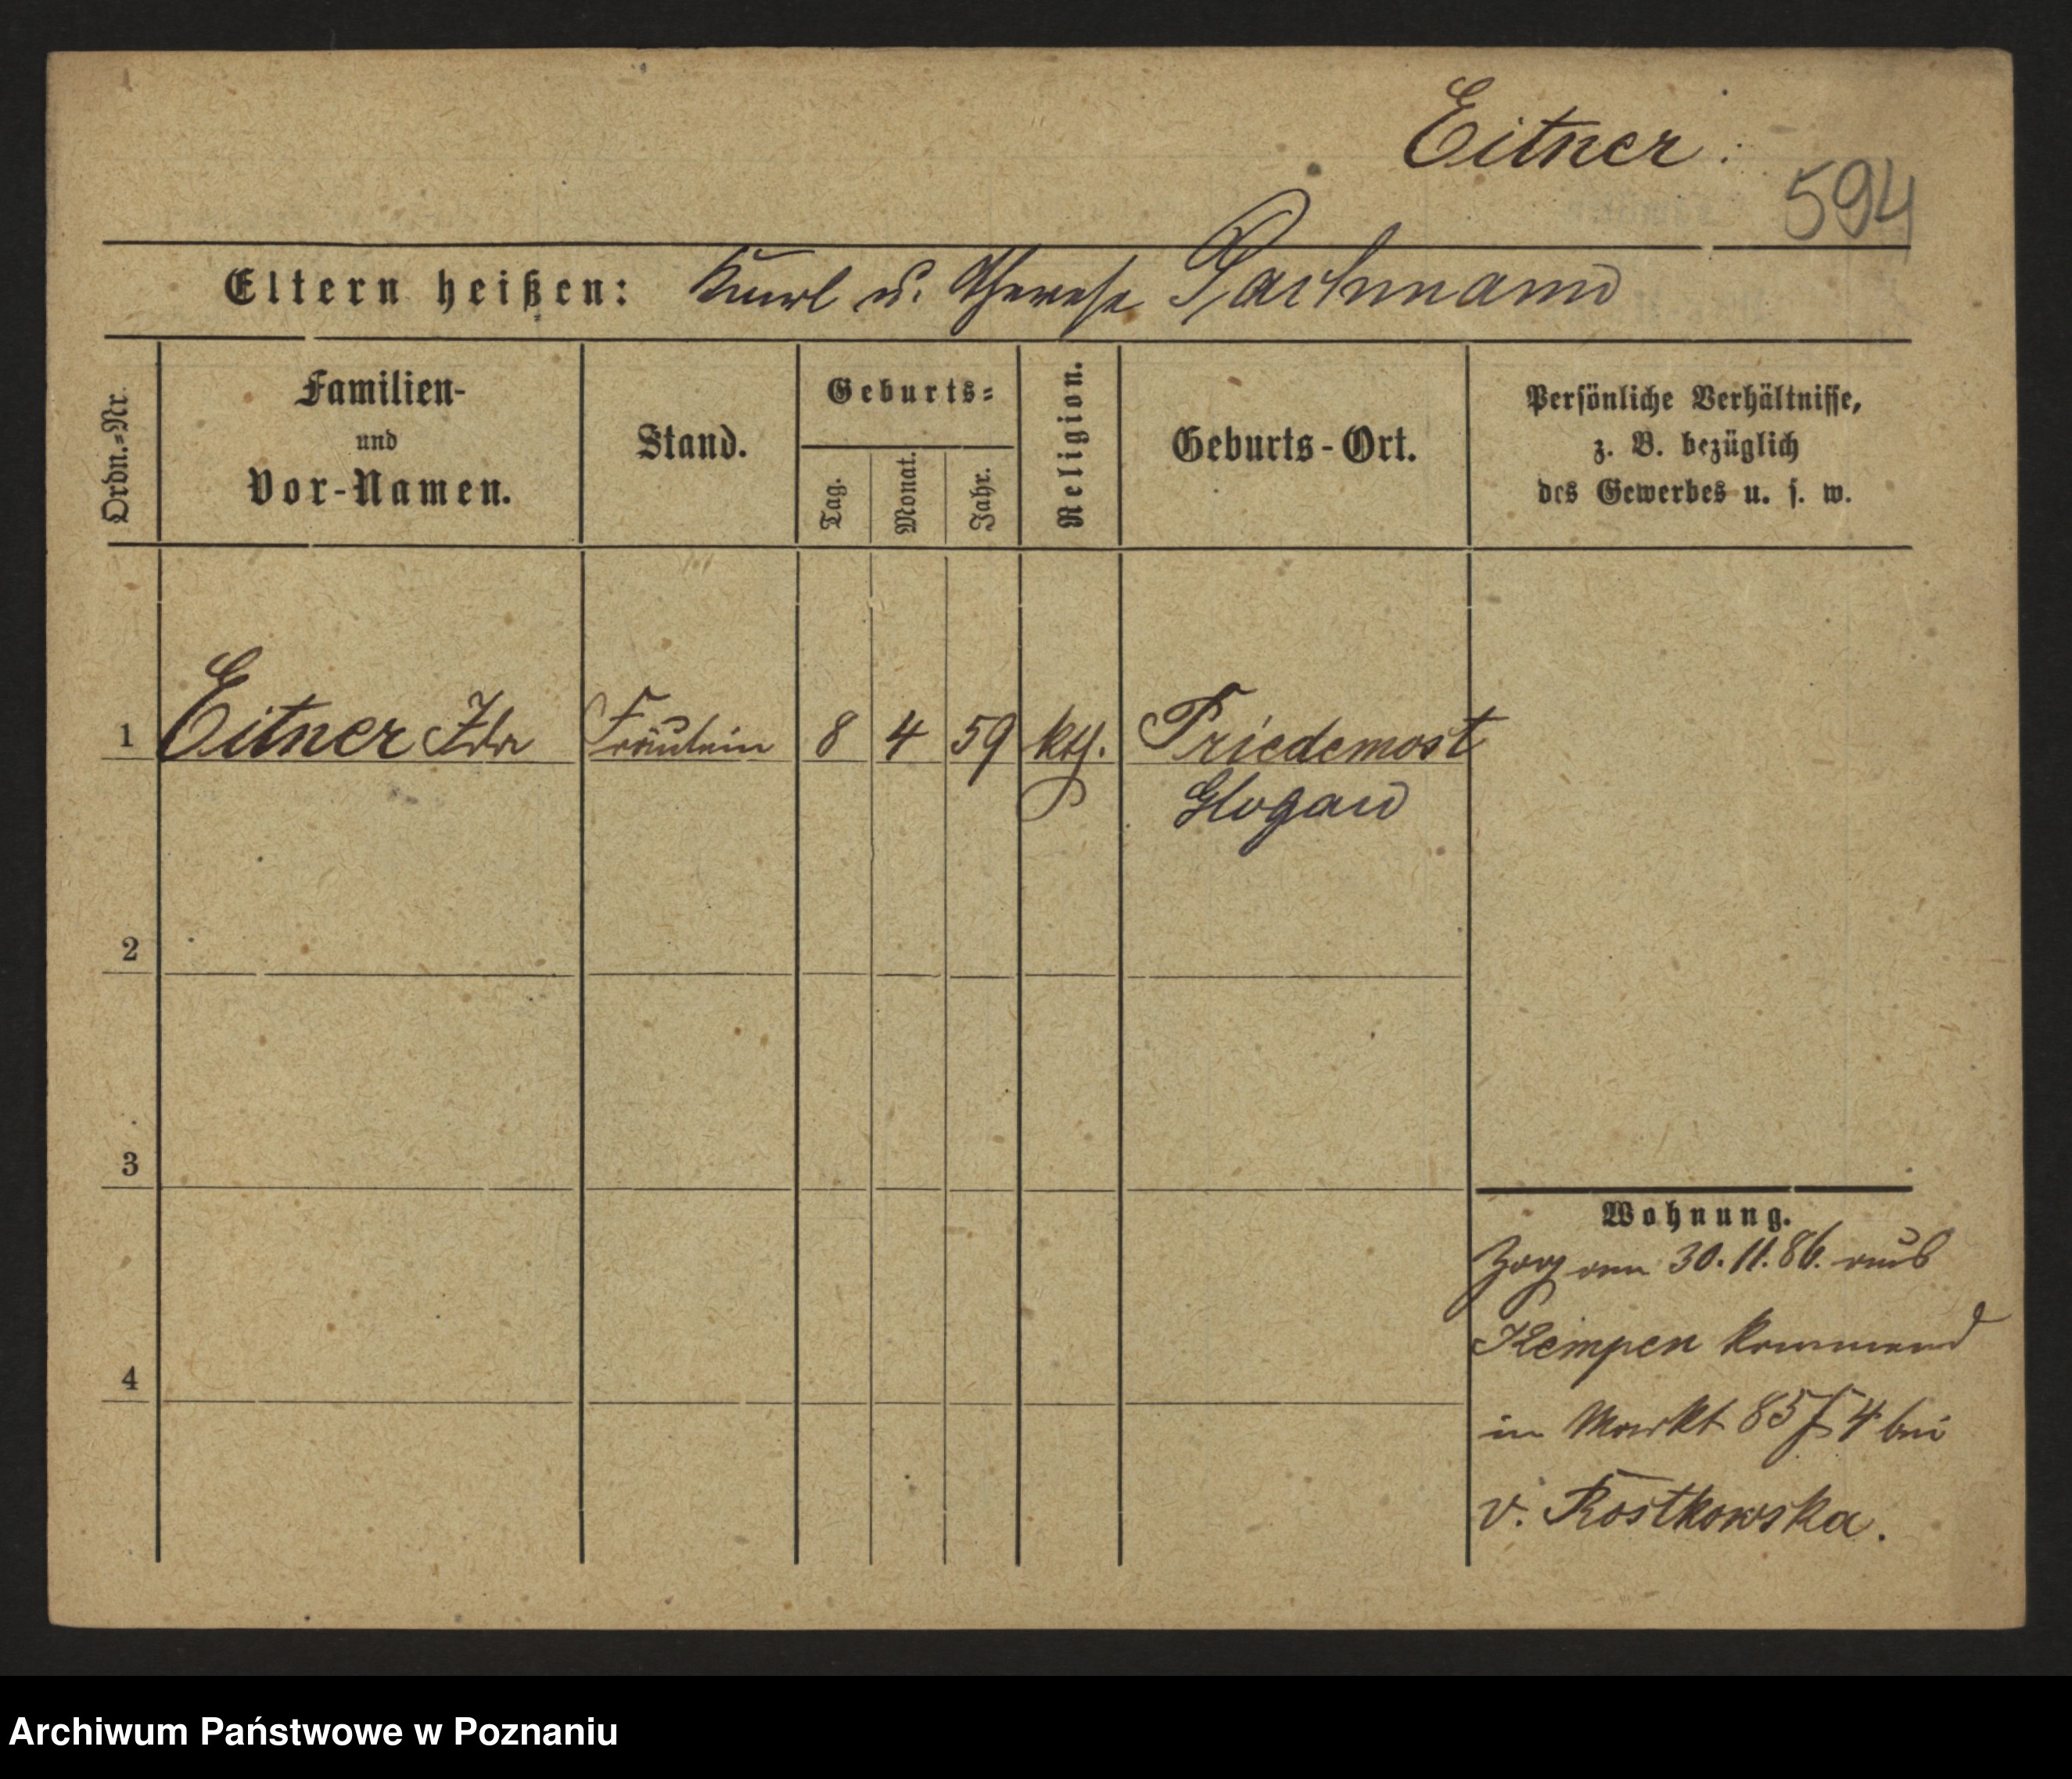 Eitner.
594
Eltern heißen: Karl u. Therese Pachmann
Ordn.=Nr.
Familien-
und
Vor-Namen.
Stand.
Geburts=
Tag.
Monat.
Jahr.
Religion.
Geburts-Ort.
Persönliche Verhältnisse,
z. B. bezüglich
des Gewerbes u. s. w.
1 Eitner Ida Fräulein 8 4 59 kth. Friedemost
Glogau
2
3
4
Wohnung.
Zog am 30.11.86. aus
Kempen kommend
in Markt 85 4 bei
v. Rostkowska.
Archiwum Państwowe w Poznaniu